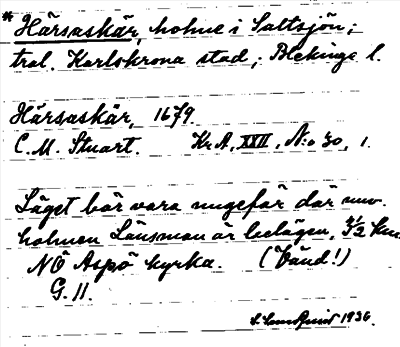 * Härsaskär, holme i Saltsjön;
tral. Karlskrona stad; Blekinge l.
Härsaskär, 1679.
C. M. Stuart. Kr.A, XVII, N:o 30, 1.
Läget bör vara ungefär där nuv.
holmen Länsman är belägen, 3 1/2 km
NÖ Aspö kyrka. (Vänd!)
G. 11.
1936.